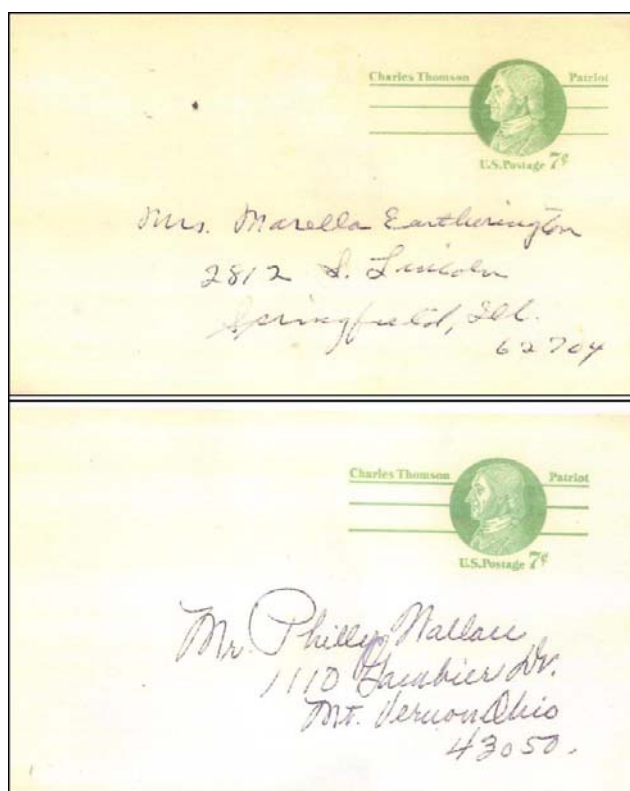 Charles Thomson Patriot
U.S. Postage 7¢
Mrs. Marella Eartherington
2812 S. Lincoln
Springfield, Ill.
62704
Charles Thomson Patriot
U.S. Postage 7¢
Mr. Phillip Wallace
1110 Gambier Dr.
Mt. Vernon Ohio
43050.